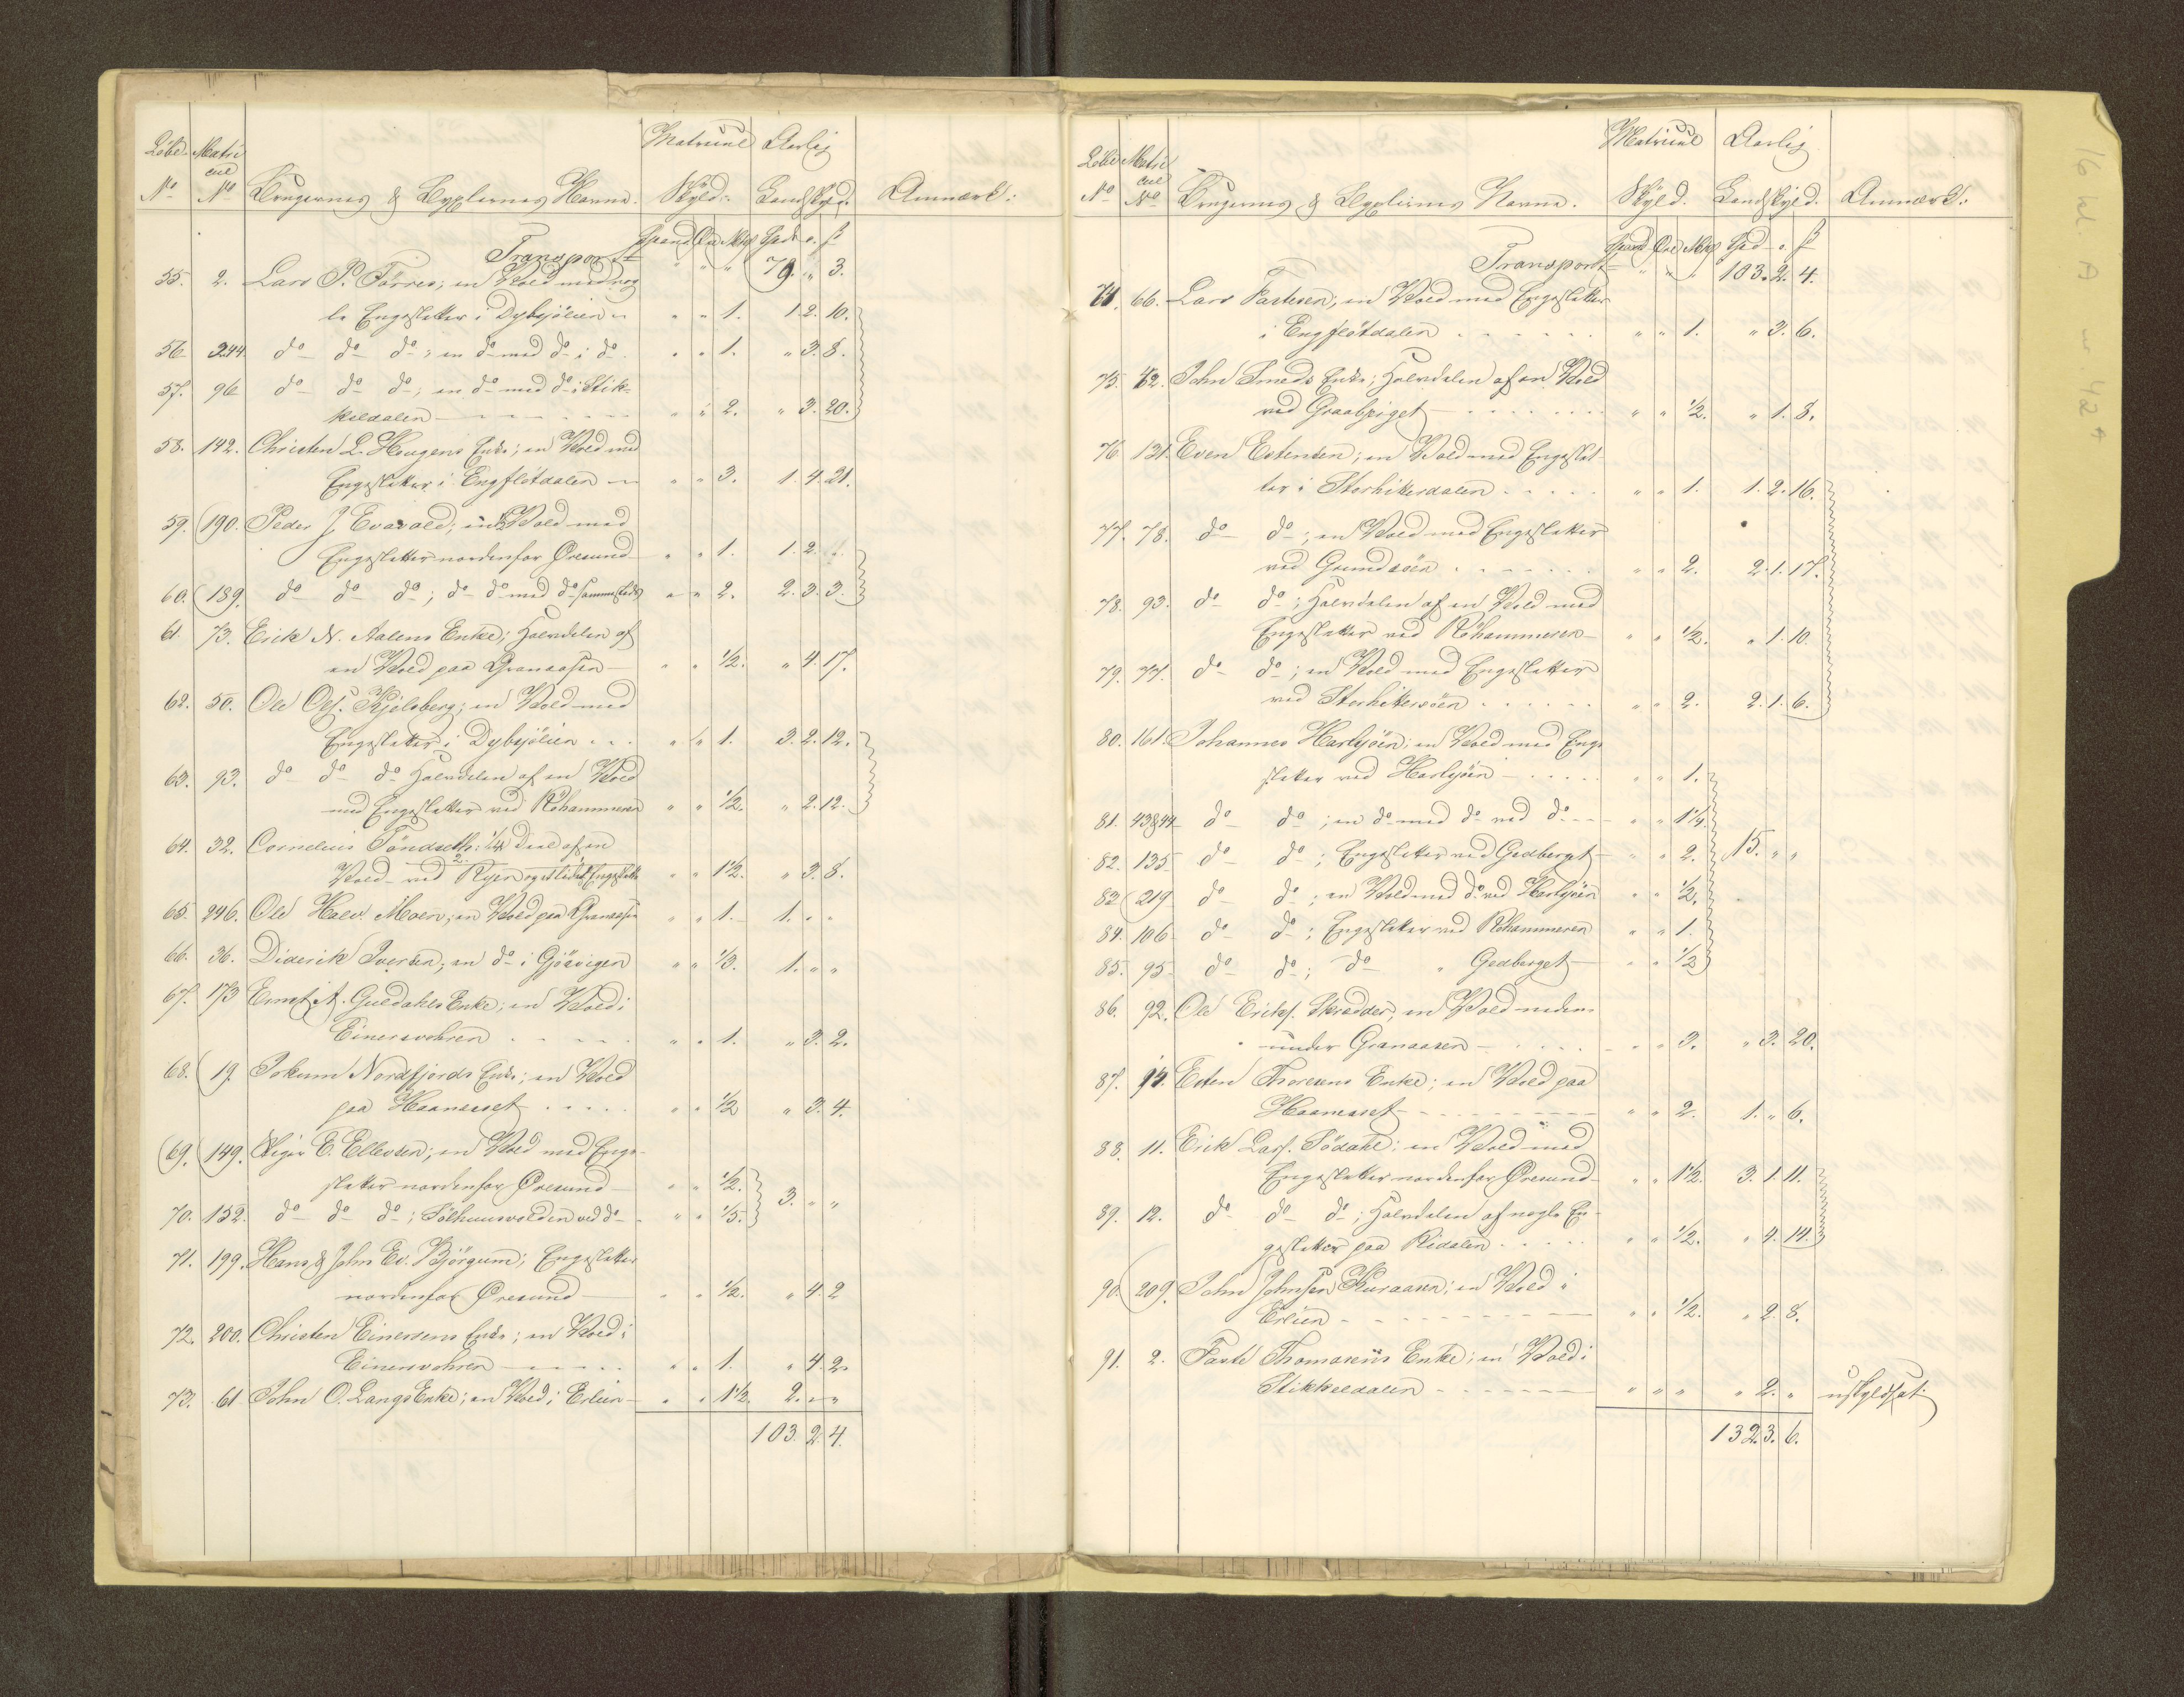 Løbe Matri Matricul Aarlig
cul
No No Brugernes & Byxlernes Navne. Skyld: Landskyld. Anmærk:
Transport " " " 79. " 3.
55. 2. Lars P. Tørres; en Vold med nog
le Engesletter i Dybsjølien " " 1. 1. 2. 10.
56. 244. do do do; en do med do i do. " " 1. " 3. 8.
57. 96 do do do; en do med do i Stik-
keldalen " " 2. " 3. 20.
58. 142. Christen L. Hougens Enke; en Vold med
Engesletter i Engfløtdalen " " 3. 1. 4. 21.
59. 190. Peder J. Evavold; en Vold med
Engesletter nordenfor Øresund " " 1. 1. 2.
60. 189. do do do; do do med do sammesteds " " 2. 2. 3. 3.
61. 73. Erick N. Aalens Enke; Halvdelen af
en Vold paa Granaasen " " 1/2. " 4. 17.
62. 50. Ole Ols. Kjelsberg; en Vold med
Engesletter i Dybsjølien " " 1. 3. 2. 12.
63. 93. do do do Halvdelen af en Vold
med Engesletter ved Røhammeren " " 1/2. " 2. 12.
64. 32. Cornelius Tøndseth: 1/4 Deel af en
Vold ved Ryen og et lidet Engeslette " " 1 1/2. " 3. 8.
65. 246. Ole Halv. Moen; en Vold paa Granaasen " " 1. 1. " "
66. 36. Diderik Iversen; en do i Gjøsvigen " " 1/3. 1. " "
67. 173 Ernst A. Guldahls Enke; en Vold i
Einersvohren " " 1. " 3. 2.
68. 19. Jokum Nordfjords Enke; en Vold
paa Haaneset " " 1/2 " 3. 4.
69. 149. Birger E. Ellevsen; en Vold med Enge-
sletter nordenfor Øresund " " 1/2.
70. 152. do do do; Sølhuusvolden ved do " " 1/5. 3. " "
71. 199. Hans & John Ev. Bjørgum; Engesletter
nordenfor Øresund " " 1/2. " 4. 2
72. 200. Christen Einersens Enke; en Vold i
Einersvohren " " 1. " 4. 2.
73. 61. John O. Langs Enke; en Vold i Erlien " " 1 1/2. 2. " "
103. 2. 4.
Løbe Matri Matricul Aarlig
cul
No No Brugernes & Byxlernes Navne. Skyld. Landskyld. Anmærk:
Transport " " " 103. 2. 4.
74. 66. Lars Fastesen; en Vold med Engesletter
i Engfløtdalen " " 1. " 3. 6.
75. 42. John Smeds Enke; Halvdelen af en Vold
ved Graabjerget " " 1/2. " 1. 8.
76. 131. Even Estensen; en Vold med Engeslet-
ter i Storhitterdalen " " 1. 1. 2. 16.
77. 78. do do; en Vold med Engesletter
ved Grundsøen " " 2. 2. 1. 17.
78. 93. do do; Halvdelen af en Vold med
Engesletter ved Røhammeren " " 1/2. " 1. 10.
79. 77. do do; en Vold med Engesletter
ved Storhittersøen " " 2. 2. 1. 6.
80. 161. Johannes Harsjøen; en Vold med Enge
sletter ved Harsjøen " " 1.
81. 43&44 do do; en do med do ved do " " 1 1/4.
82. 135 do do; Engesletter ved Gedberget " " 2. 15. " "
83 219 do do; en Vold med do ved Harsjøen " " 1/2.
84. 106 do do; Engesletter ved Røhammeren " " 1.
85. 95 do do; do " Gedberget " " 1/2
86. 92. Ole Ericks. Skrædder; en Vold neden-
under Granaasen " " 3. " 3. 20.
87. 14. Esten Thoresens Enke; en Vold paa
Haaneset " " 2. 1. " 6.
88. 11. Erik Lars. Sødahl; en Vold med
Engesletter nordenfor Øresund " " 1 1/2. 3. 1. 11.
89. 12. do do do; Halvdelen af nogle En-
gesletter paa Kidalen " " 1/2. " 4. 14.
90. 209. John Johnsen Kuraasen; en Vold i
Erlien " " 1/2. " 2. 8.
91. 2. Faste Thomasens Enke; en Vold i
Stikkeldalen " " " " 2. " uskyldsat
132. 3. 6.